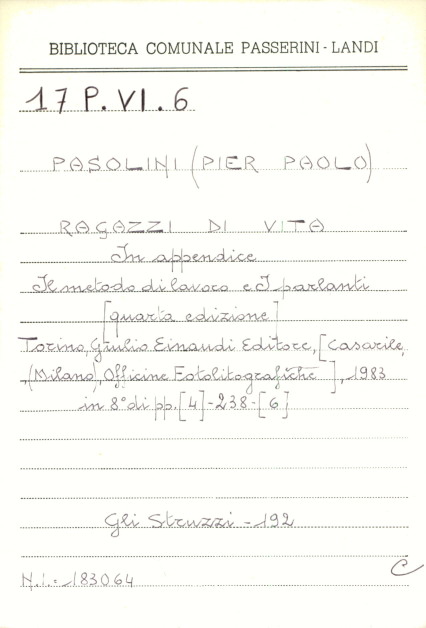 BIBLIOTECA COMUNALE PASSERINI - LANDI
17 P. VI. 6
PASOLINI (PIER PAOLO)
RAGAZZI DI VITA
In appendice
Il metodo di lavoro e I parlanti
[quarta edizione]
Torino, Giulio Einaudi Editore, [Casarile,
(Milano), Officine Fotolitografiche], 1983
in 8° di pp. [4]-238-[6]
Gli Struzzi - 192
C
N.i.: 183064